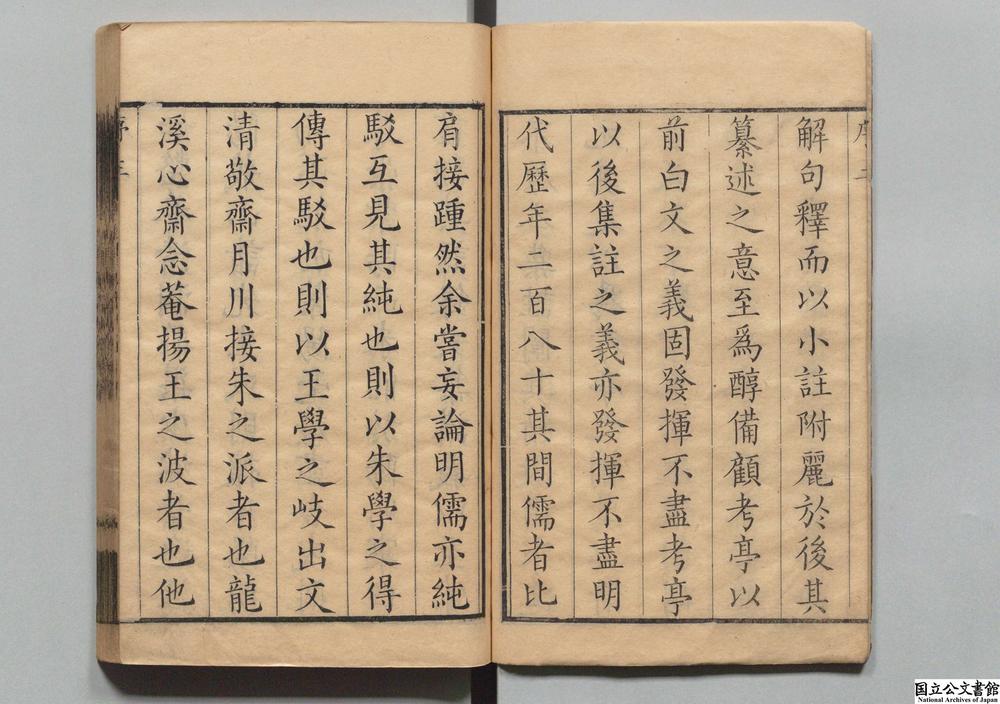 解句釋而以小註附麗於後其
纂述之意至爲醇備顧考亭以
前白文之義固發揮不盡考亭
以後集註之義亦發揮不盡明
代歷年二百八十其間儒者比
肩接踵然余嘗妄論明儒亦純
駁互見其純也則以朱學之得
傳其駁也則以王學之岐出文
清敬齋月川接朱之派者也龍
溪心齋念菴揚王之波者也他
国立公文書館
National Archives of Japan